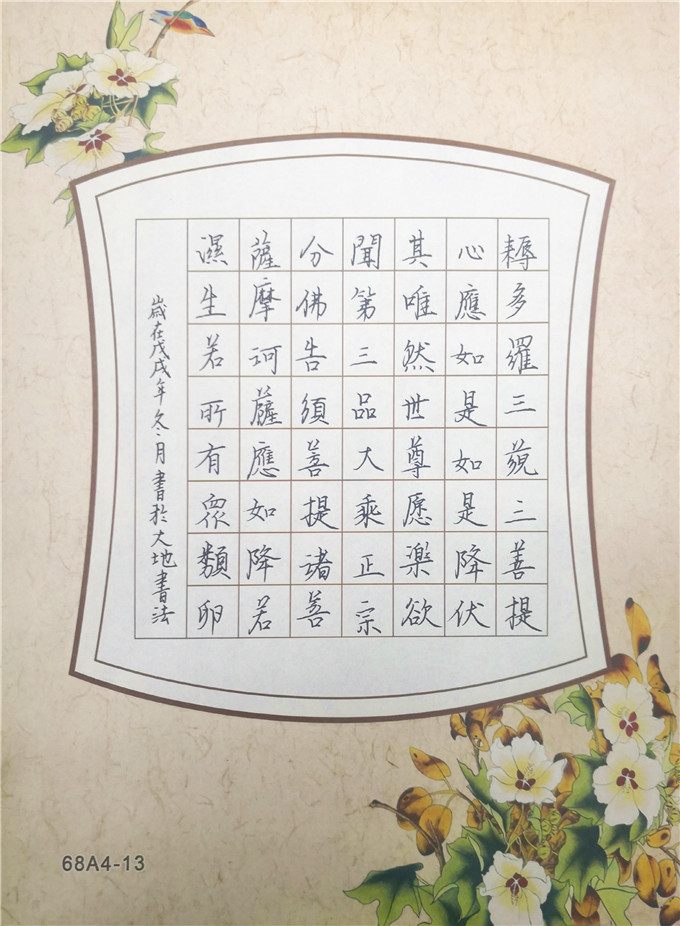 耨多羅三藐三善提
心應如是如是降伏
其唯然世尊愿樂欲
聞第三品大乘正宗
分佛告須善提諸善
薩摩訶薩應如降若
濕生若所有眾類卵
歲在戊戌年冬月書於大地書法
68A4-13